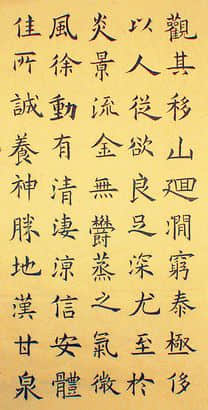 觀其移山廻澗窮泰極侈
以人從欲良足深尤至於
炎景流金無鬱蒸之氣微
風徐動有清淒涼信安體
佳所誠養神勝地漢甘泉